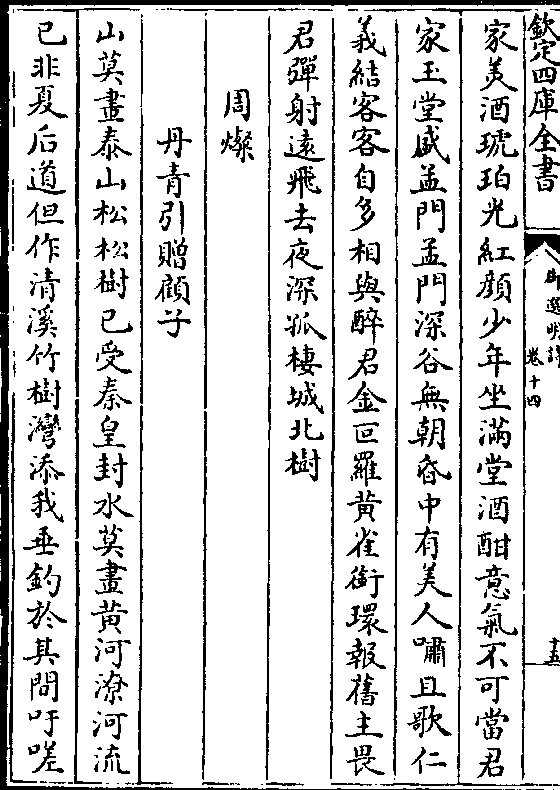 欽定四庫全書
御選明詩
卷十四
十五
家美酒琥珀光紅顏少年坐滿堂酒酣意氣不可當君
家玉堂咸孟門孟門深谷無朝昏中有美人嘯且歌仁
義結客客自多相與醉君金叵羅黃雀銜環報舊主畏
君彈射遠飛去夜深孤棲城北樹
周燦
丹青引贈顧子
山莫畫泰山松松樹已受秦皇封水莫畫黃河潦河流
已非夏后道但作清溪竹樹灣添我垂釣於其間吁嗟